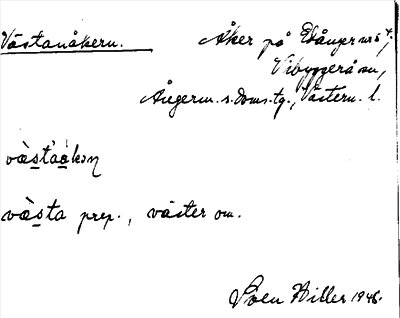 Västanåkern. Åker på Edånger nr 5 4,
Vibyggerå sn,
Ångerm. s. doms. tg., Västern. l.
västaåkɘn
västa prep., väster om.
Sven Hiller 1946.